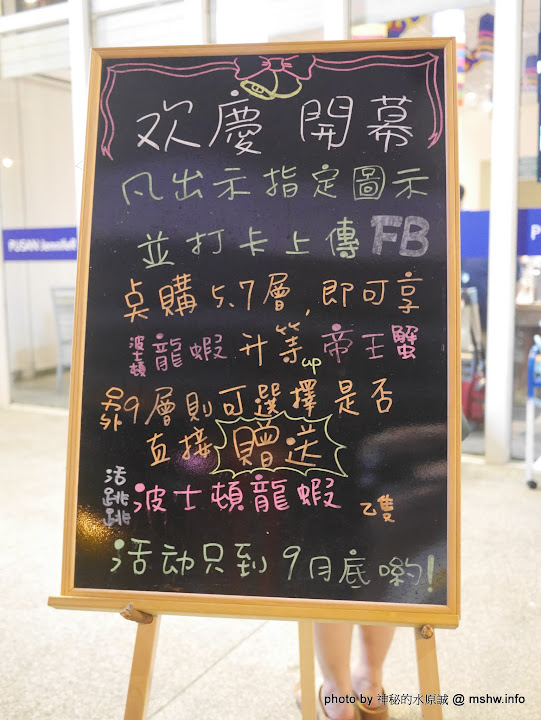 欢慶 開幕
凡出示指定圖示
並打卡上傳FB
點購5.7層,即可享
波士頓龍蝦升等up帝王蟹
另外9層則可選擇是否
直接贈送
活跳跳波士頓龍蝦 乙隻
活动只到9月底喲!
PUSAN
photo by 神秘的水原誠 @ mshw.info